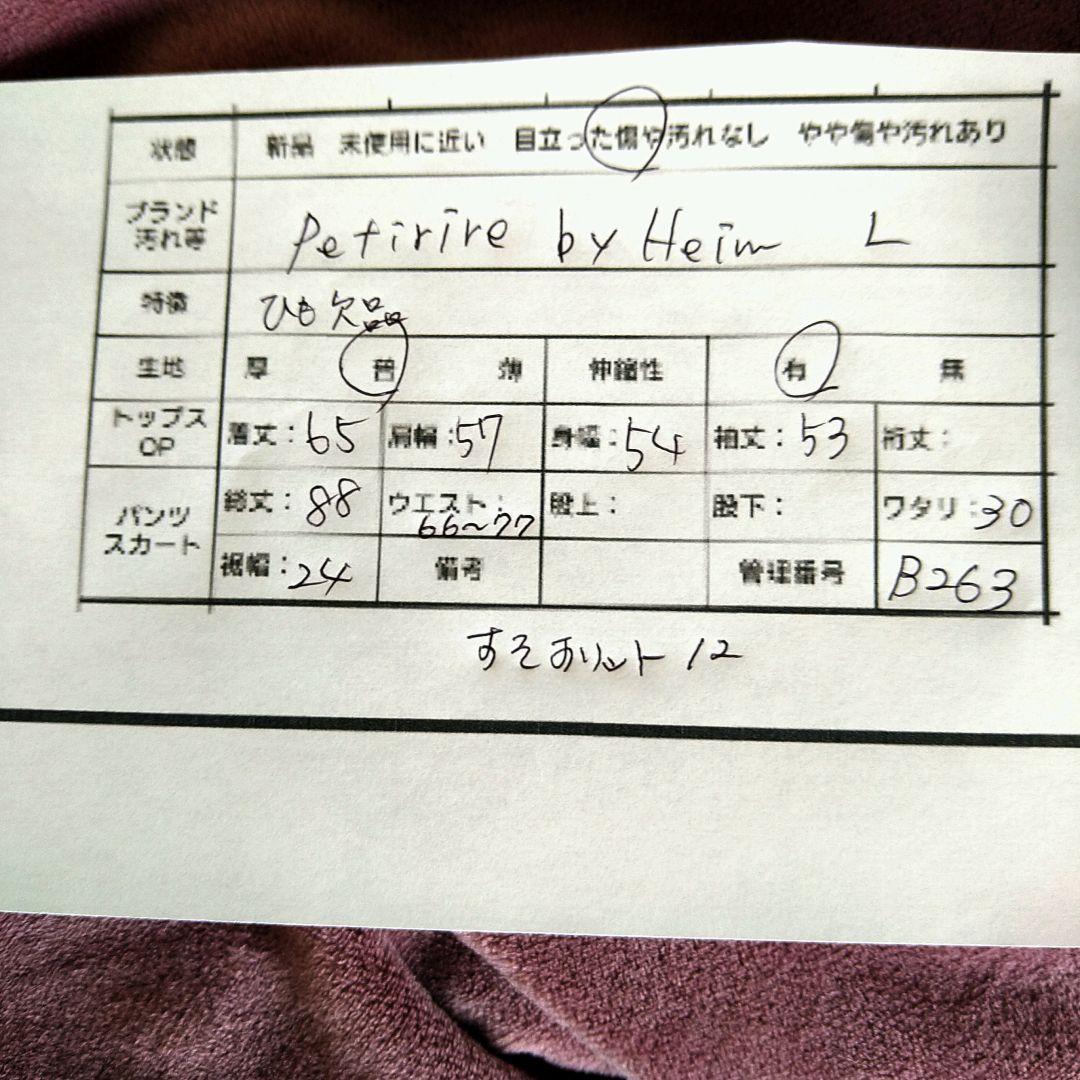 状態 新品 未使用に近い 目立った傷や汚れなし やや傷や汚れあり
ブランド
汚れ等 Petirire by Heim L
特徴 ひも欠品
生地 厚 普 薄 伸縮性 有 無
トップス
OP 着丈:65 肩幅:57 身幅:54 袖丈:53 裄丈:
パンツ
スカート 総丈:88 ウエスト:66~77 股上: 股下: ワタリ:30
裾幅:24 備考 管理番号 B263
すそスリット 12